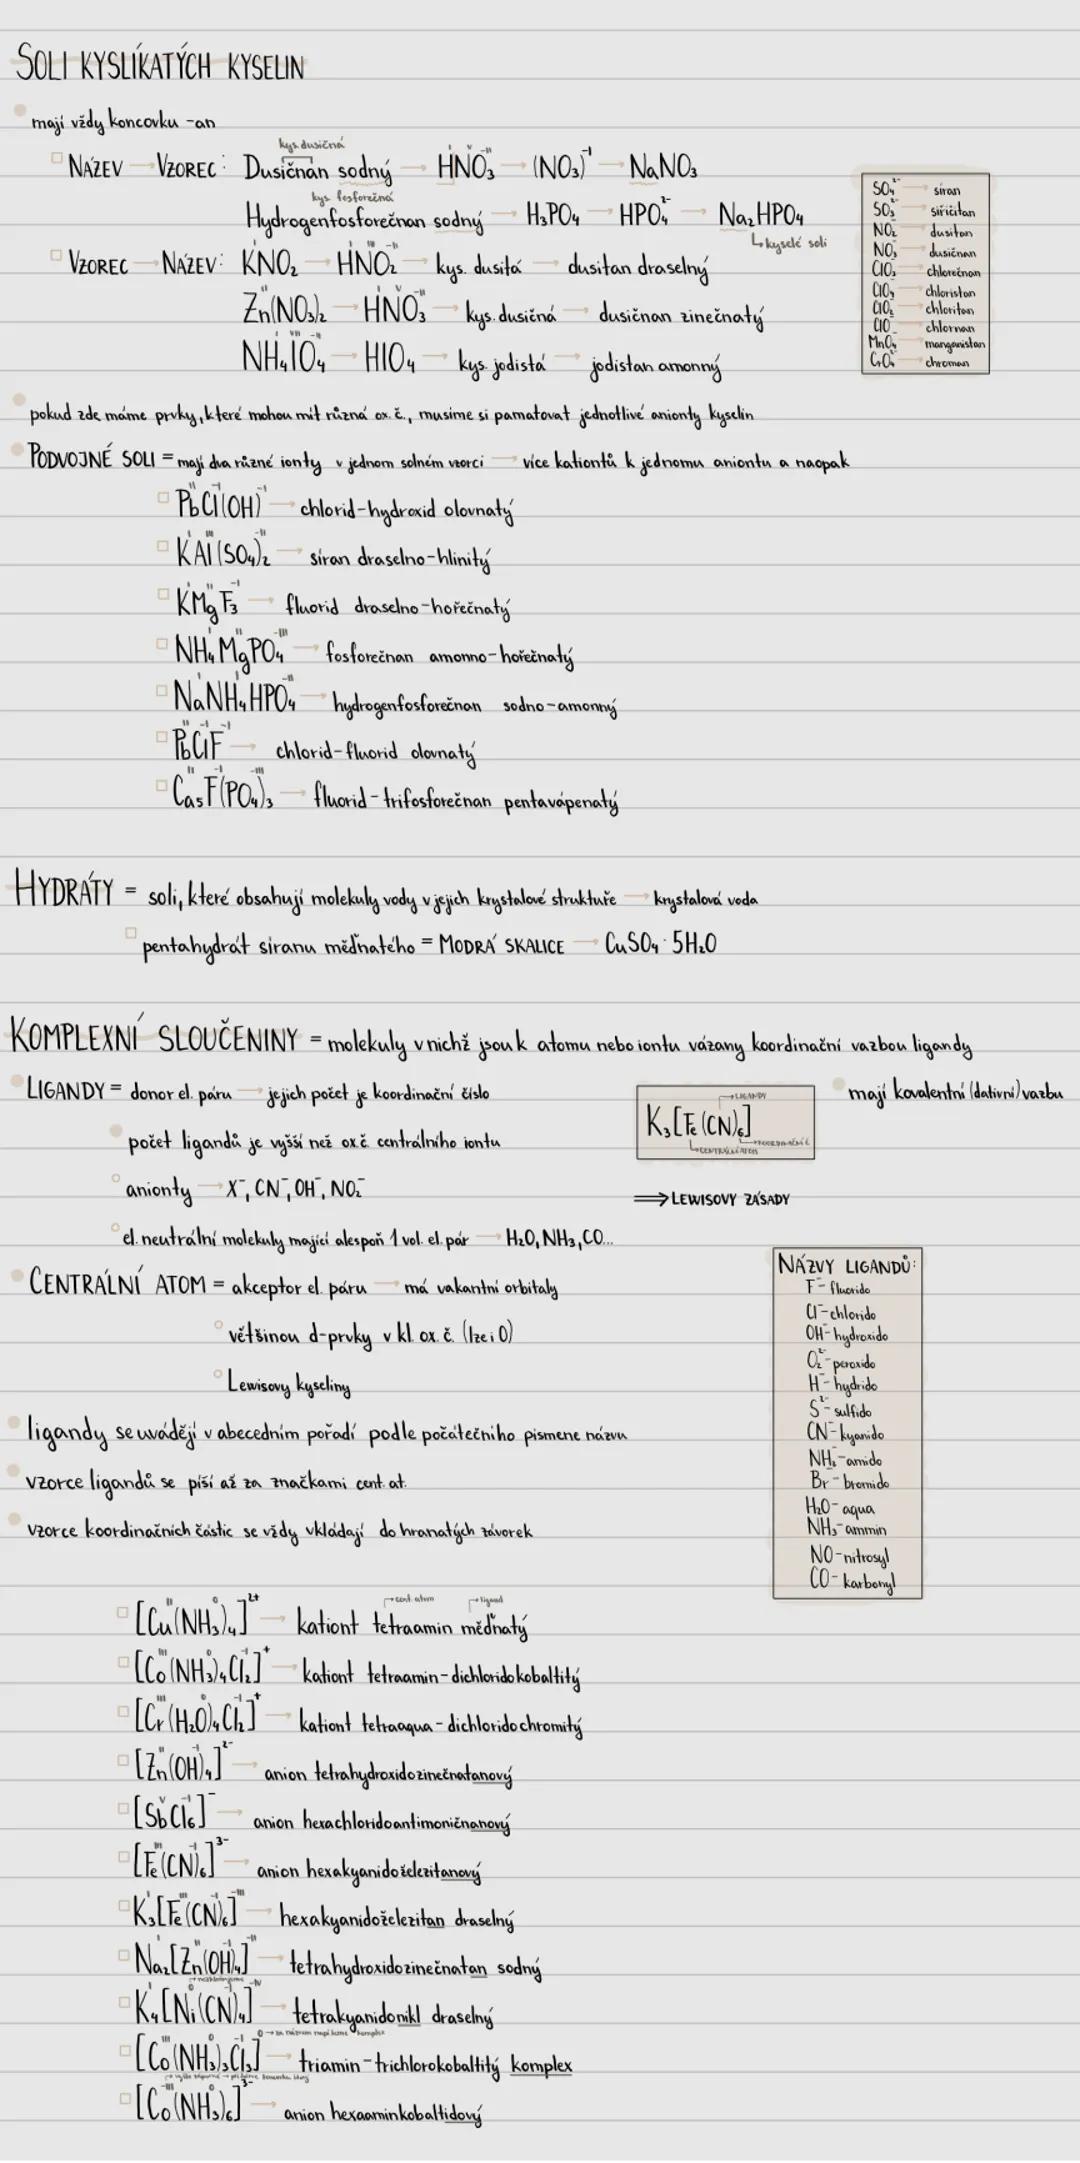 SOLI KYSLÍKATÝCH KYSELIN
mají vždy koncovku -an
kys. dusičná
NÁZEV → VZOREC: Dusičnan sodný → HNO₃ → (NO₃)⁻¹ → NaNO₃
kys. fosforečná
Hydrogenfosforečnan sodný → H₃PO₄ → HPO₄²⁻ → Na₂HPO₄
↳ kyselé soli
VZOREC → NÁZEV: KNO₂ → HNO₂ → kys. dusitá → dusitan draselný
Zn(NO₃)₂ → HNO₃ → kys. dusičná → dusičnan zinečnatý
NH₄IO₄ → HIO₄ → kys. jodistá → jodistan amonný
SO₄²⁻ → síran
SO₃²⁻ → siřičitan
NO₂⁻ → dusitan
NO₃⁻ → dusičnan
ClO₃⁻ → chlorečnan
ClO₄⁻ → chloristan
ClO₂⁻ → chloritan
ClO⁻ → chlornan
MnO₄⁻ → manganistan
CrO₄²⁻ → chroman
pokud zde máme prvky, které mohou mít různá ox. č., musíme si pamatovat jednotlivé anionty kyselin
PODVOJNÉ SOLI = mají dva různé ionty v jednom solném vzorci → více kationtů k jednomu aniontu a naopak
PbCl(OH) → chlorid-hydroxid olovnatý
KAl(SO₄)₂ → síran draselno-hlinitý
KMgF₃ → fluorid draselno-hořečnatý
NH₄MgPO₄ → fosforečnan amonno-hořečnatý
NaNH₄HPO₄ → hydrogenfosforečnan sodno-amonný
PbClF → chlorid-fluorid olovnatý
Ca₅F(PO₄)₃ → fluorid-trifosforečnan pentavápenatý
HYDRÁTY = soli, které obsahují molekuly vody v jejich krystalové struktuře → krystalová voda
pentahydrát síranu měďnatého = MODRÁ SKALICE → CuSO₄ · 5H₂O
KOMPLEXNÍ SLOUČENINY = molekuly v nichž jsou k atomu nebo iontu vázany koordinační vazbou ligandy
LIGANDY = donor el. páru → jejich počet je koordinační číslo
mají kovalentní (dativní) vazbu
→ LIGANDY
K₃[Fe(CN)₆]
→ KOORDINAČNÍ Č.
↳ CENTRÁLNÍ ATOM
počet ligandů je vyšší než ox.č. centrálního iontu
anionty → X⁻, CN⁻, OH⁻, NO₂⁻
⟹ LEWISOVY ZÁSADY
el. neutrální molekuly mající alespoň 1 vol. el. pár → H₂O, NH₃, CO...
CENTRÁLNÍ ATOM = akceptor el. páru → má vakantní orbitaly
většinou d-prvky v kl. ox. č. (lze i 0)
Lewisovy kyseliny
ligandy se uvádějí v abecedním pořadí podle počátečního písmene názvu
vzorce ligandů se píší až za značkami cent. at.
vzorce koordinačních částic se vždy vkládají do hranatých závorek
NÁZVY LIGANDŮ:
F⁻ - fluorido
Cl⁻ - chlorido
OH⁻ - hydroxido
O₂²⁻ - peroxido
H⁻ - hydrido
S²⁻ - sulfido
CN⁻ - kyanido
NH₂⁻ - amido
Br⁻ - bromido
H₂O - aqua
NH₃ - ammin
NO - nitrosyl
CO - karbonyl
→ cent. atom → ligand
[Cu(NH₃)₄]²⁺ → kationt tetraamin měďnatý
[Co(NH₃)₄Cl₂]⁺ → kationt tetraamin-dichloridokobaltitý
[Cr(H₂O)₄Cl₂]⁺ → kationt tetraaqua-dichloridochromitý
[Zn(OH)₄]²⁻ → anion tetrahydroxidozinečnatanový
[SbCl₆]⁻ → anion hexachloridoantimoničnanový
[Fe(CN)₆]³⁻ → anion hexakyanidoželezitanový
K₃[Fe(CN)₆] → hexakyanidoželezitan draselný
Na₂[Zn(OH)₄] → tetrahydroxidozinečnatan sodný
K₄[Ni(CN)₄] → tetrakyanidonikl draselný
0 → za názvem napíšeme komplex
[Co(NH₃)₃Cl₃] → triamin-trichlorokobaltitý komplex
[Co(NH₃)₆]³⁻ → anion hexaaminkobaltidový